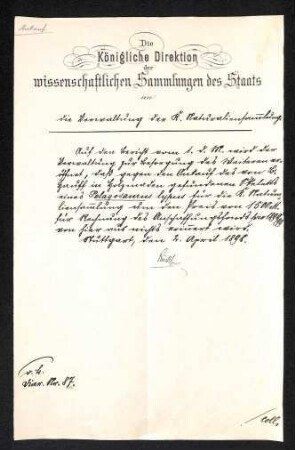 Die
Königliche Direktion
der
wissenschaftlichen Sammlungen des Staats
an
die Verwaltung der K. Naturaliensammlung.
Auf den Bericht vom 1. d. M. wird der
Verwaltung zur Besorgung des Weiteren er-
öffnet, daß gegen den Ankauf des von B.
Hauff in Holzmaden gefundenen Skeletts
eines Pelagosaurus typus für die K. Natura-
liensammlung um den Preis von 1500 M.
für Rechnung des Anschaffungsfonds
von hier aus nichts erinnert wird.
Stuttgart, den 4. April 1898.
Diar. Nr. 87.